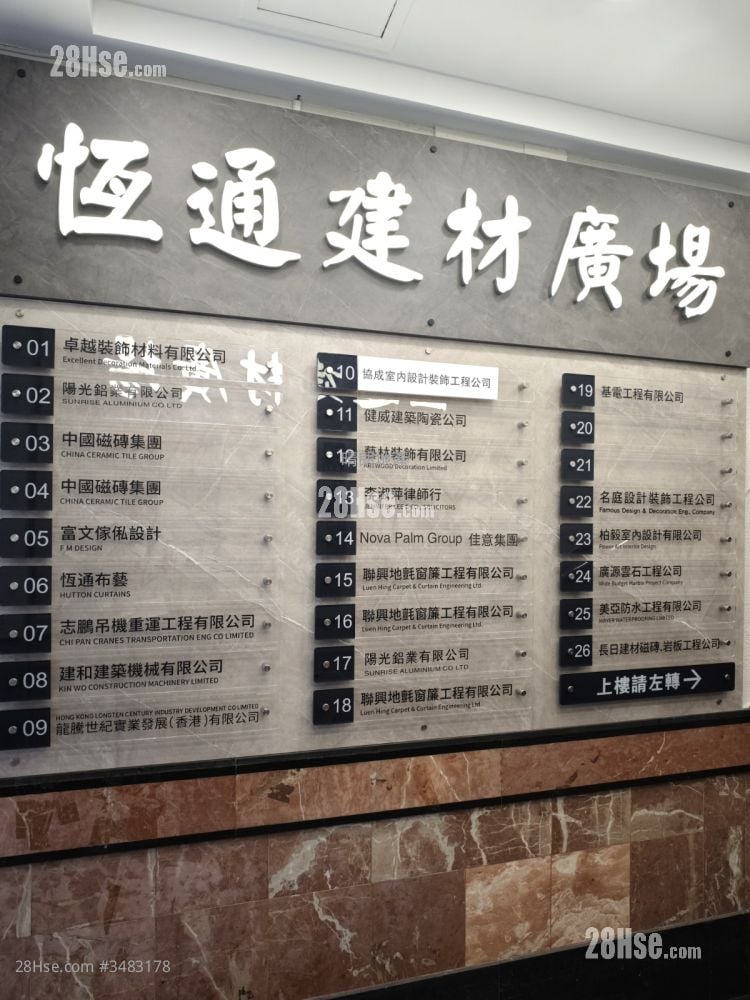 28Hse.com
恆通建材廣場
01 卓越裝飾材料有限公司
Excellent Decoration Materials Co. Ltd.
02 陽光鋁業有限公司
SUNRISE ALUMINIUM CO LTD
03 中國磁磚集團
CHINA CERAMIC TILE GROUP
04 中國磁磚集團
CHINA CERAMIC TILE GROUP
05 富文傢俬設計
F M DESIGN
06 恆通布藝
HUTTON CURTAINS
07 志鵬吊機重運工程有限公司
CHI PAN CRANES TRANSPORTATION ENG CO LIMITED
08 建和建築機械有限公司
KIN WO CONSTRUCTION MACHINERY LIMITED
HONG KONG LONGTEN CENTURY INDUSTRY DEVELOPMENT CO LIMITED
09 龍騰世紀實業發展(香港)有限公司
10 協成室內設計裝飾工程公司
11 健威建築陶瓷公司
12 藝林裝飾有限公司
ARTWOOD Decoration Limited
28Hse.com
13 李淑萍律師行
SOLICITORS
14 Nova Palm Group 佳意集團
15 聯興地氈窗簾工程有限公司
Luen Hing Carpet & Curtain Engineering Ltd.
16 聯興地氈窗簾工程有限公司
Luen Hing Carpet & Curtain Engineering Ltd.
17 陽光鋁業有限公司
SUNRISE ALUMINIUM CO LTD
18 聯興地氈窗簾工程有限公司
Luen Hing Carpet & Curtain Engineering Ltd.
19 基電工程有限公司
20
21
22 名庭設計裝飾工程公司
Famous Design & Decoration Eng., Company
23 柏毅室內設計有限公司
24 廣源雲石工程公司
Wide Budget Marble Project Company
25 美亞防水工程有限公司
MAYER WATERPROOFING LIMITED
26 長日建材磁磚,岩板工程公司
上樓請左轉→
28Hse.com
28Hse.com #3483178